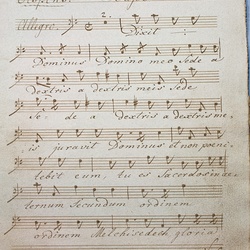 Allegro. Dixit
Dominus Domino meo Sede a
Dextris a dextris meis Sede
Se- de a dextris a dextris me,
is juravit Dominus et non poeni,
tebit eum, tu es Sacerdos in ae
ternum Secundum ordinem
ordinem Melchisedech gloria